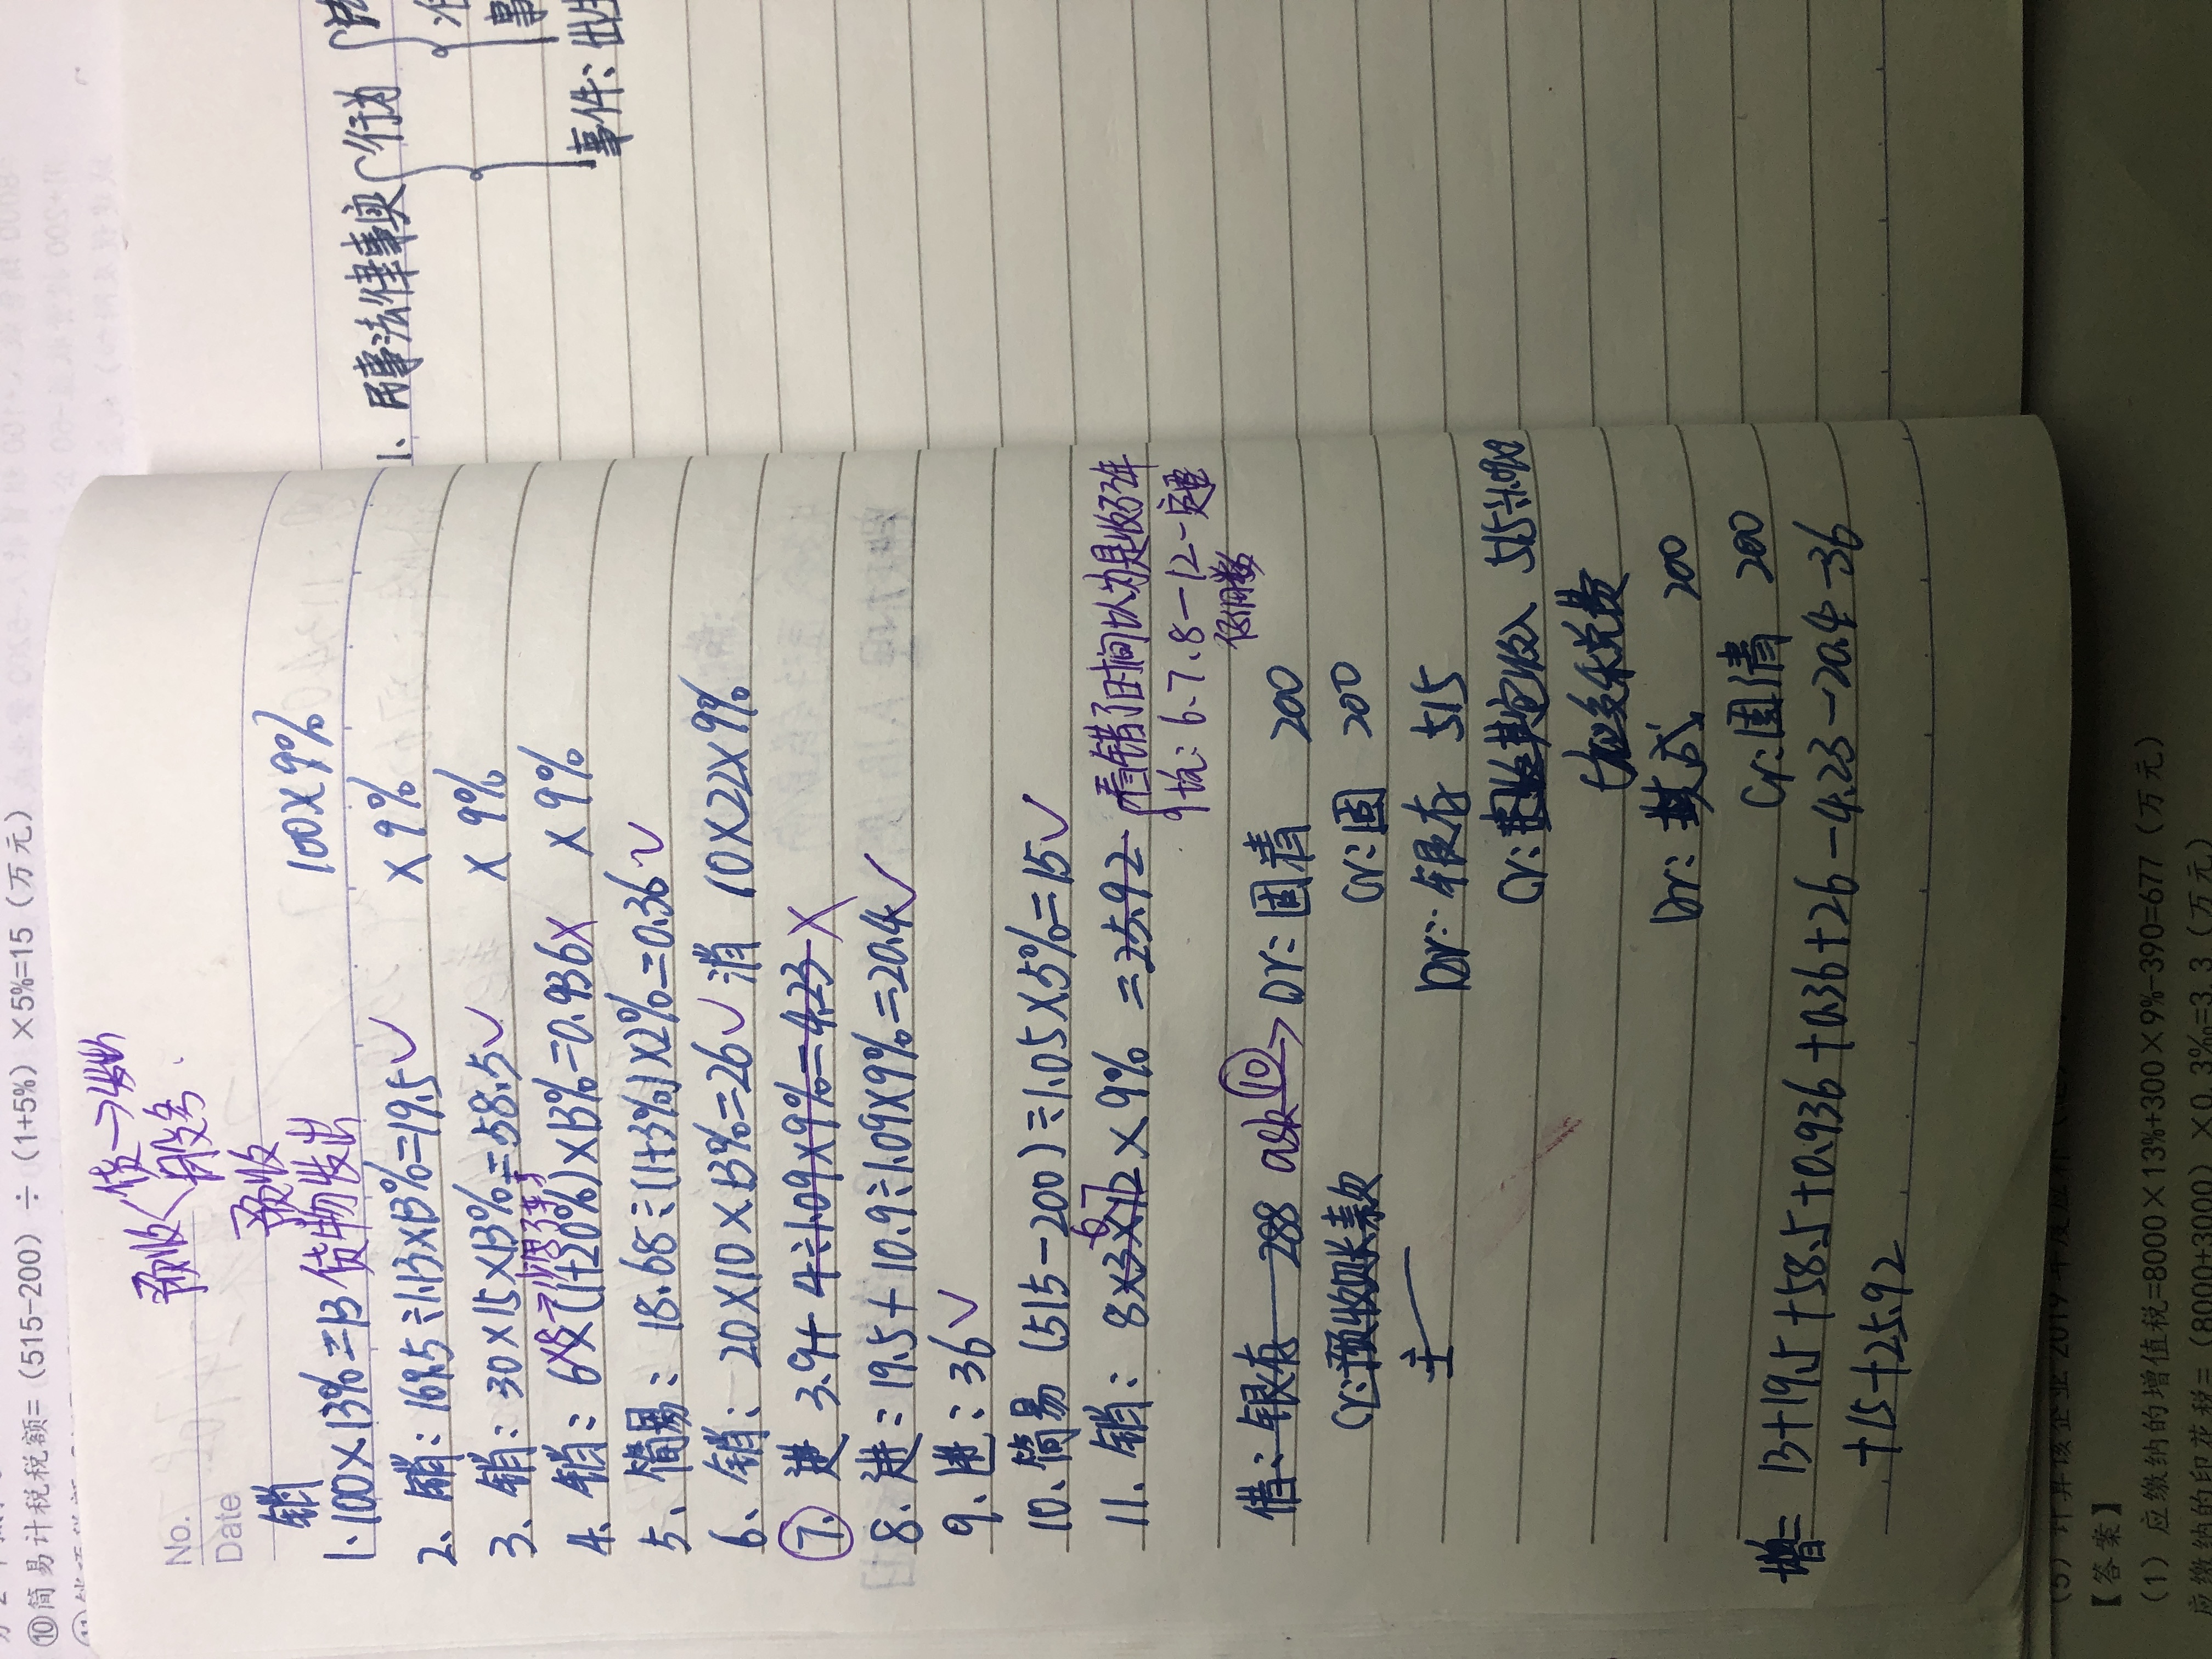 ⑩简易计税税额=（515-200）÷（1+5%）×5%=15（万元）
预收 货→发出
服务
No.
Date
预收
销
1. 100×13%=13 货物发出 100×9%
2、销：169.5÷1.13×13%=19.5✓ ×9%
3、销：30×15×13%=58.5✓ ×9%
4、销：6×(1+20%)×13%=0.936× ×9%
×8→少
5、简易：18.68÷(1+3%)×2%=0.36✓
6、销：20×10×13%=26✓ 消 10×22×9%
⑦. 进 3.9+4÷1.09×9%=4.23×
8、进：19.5+10.9÷1.09×9%=20.4✓
9、进：36✓
10、简易 (515-200)÷1.05×5%=15✓
6 7
11、销：8×3×12×9% =25.92 看错了时间以为是收了3年
坑：6、7、8—12一定要
借：银存 288 ask⑩→ Dr：固清 200
Cr：预收账款 Cr：固 200
主
Dr：银存 515
Cr：其它收入 515÷1.09×9
应交税费
Dr：其成 200
Cr：固清 200
增= 13+19.5+58.5+0.936+0.36+26-4.23-20.4-36
+15+25.92
1、民事法律事实 行为
事件：出生
（5）计算该企业2019年度应补
【答案】
（1）应缴纳的增值税=8000×13%+300×9%-390=677（万元）
应缴纳的印花税=（8000+3000）×0.3‰=3.3（万元）